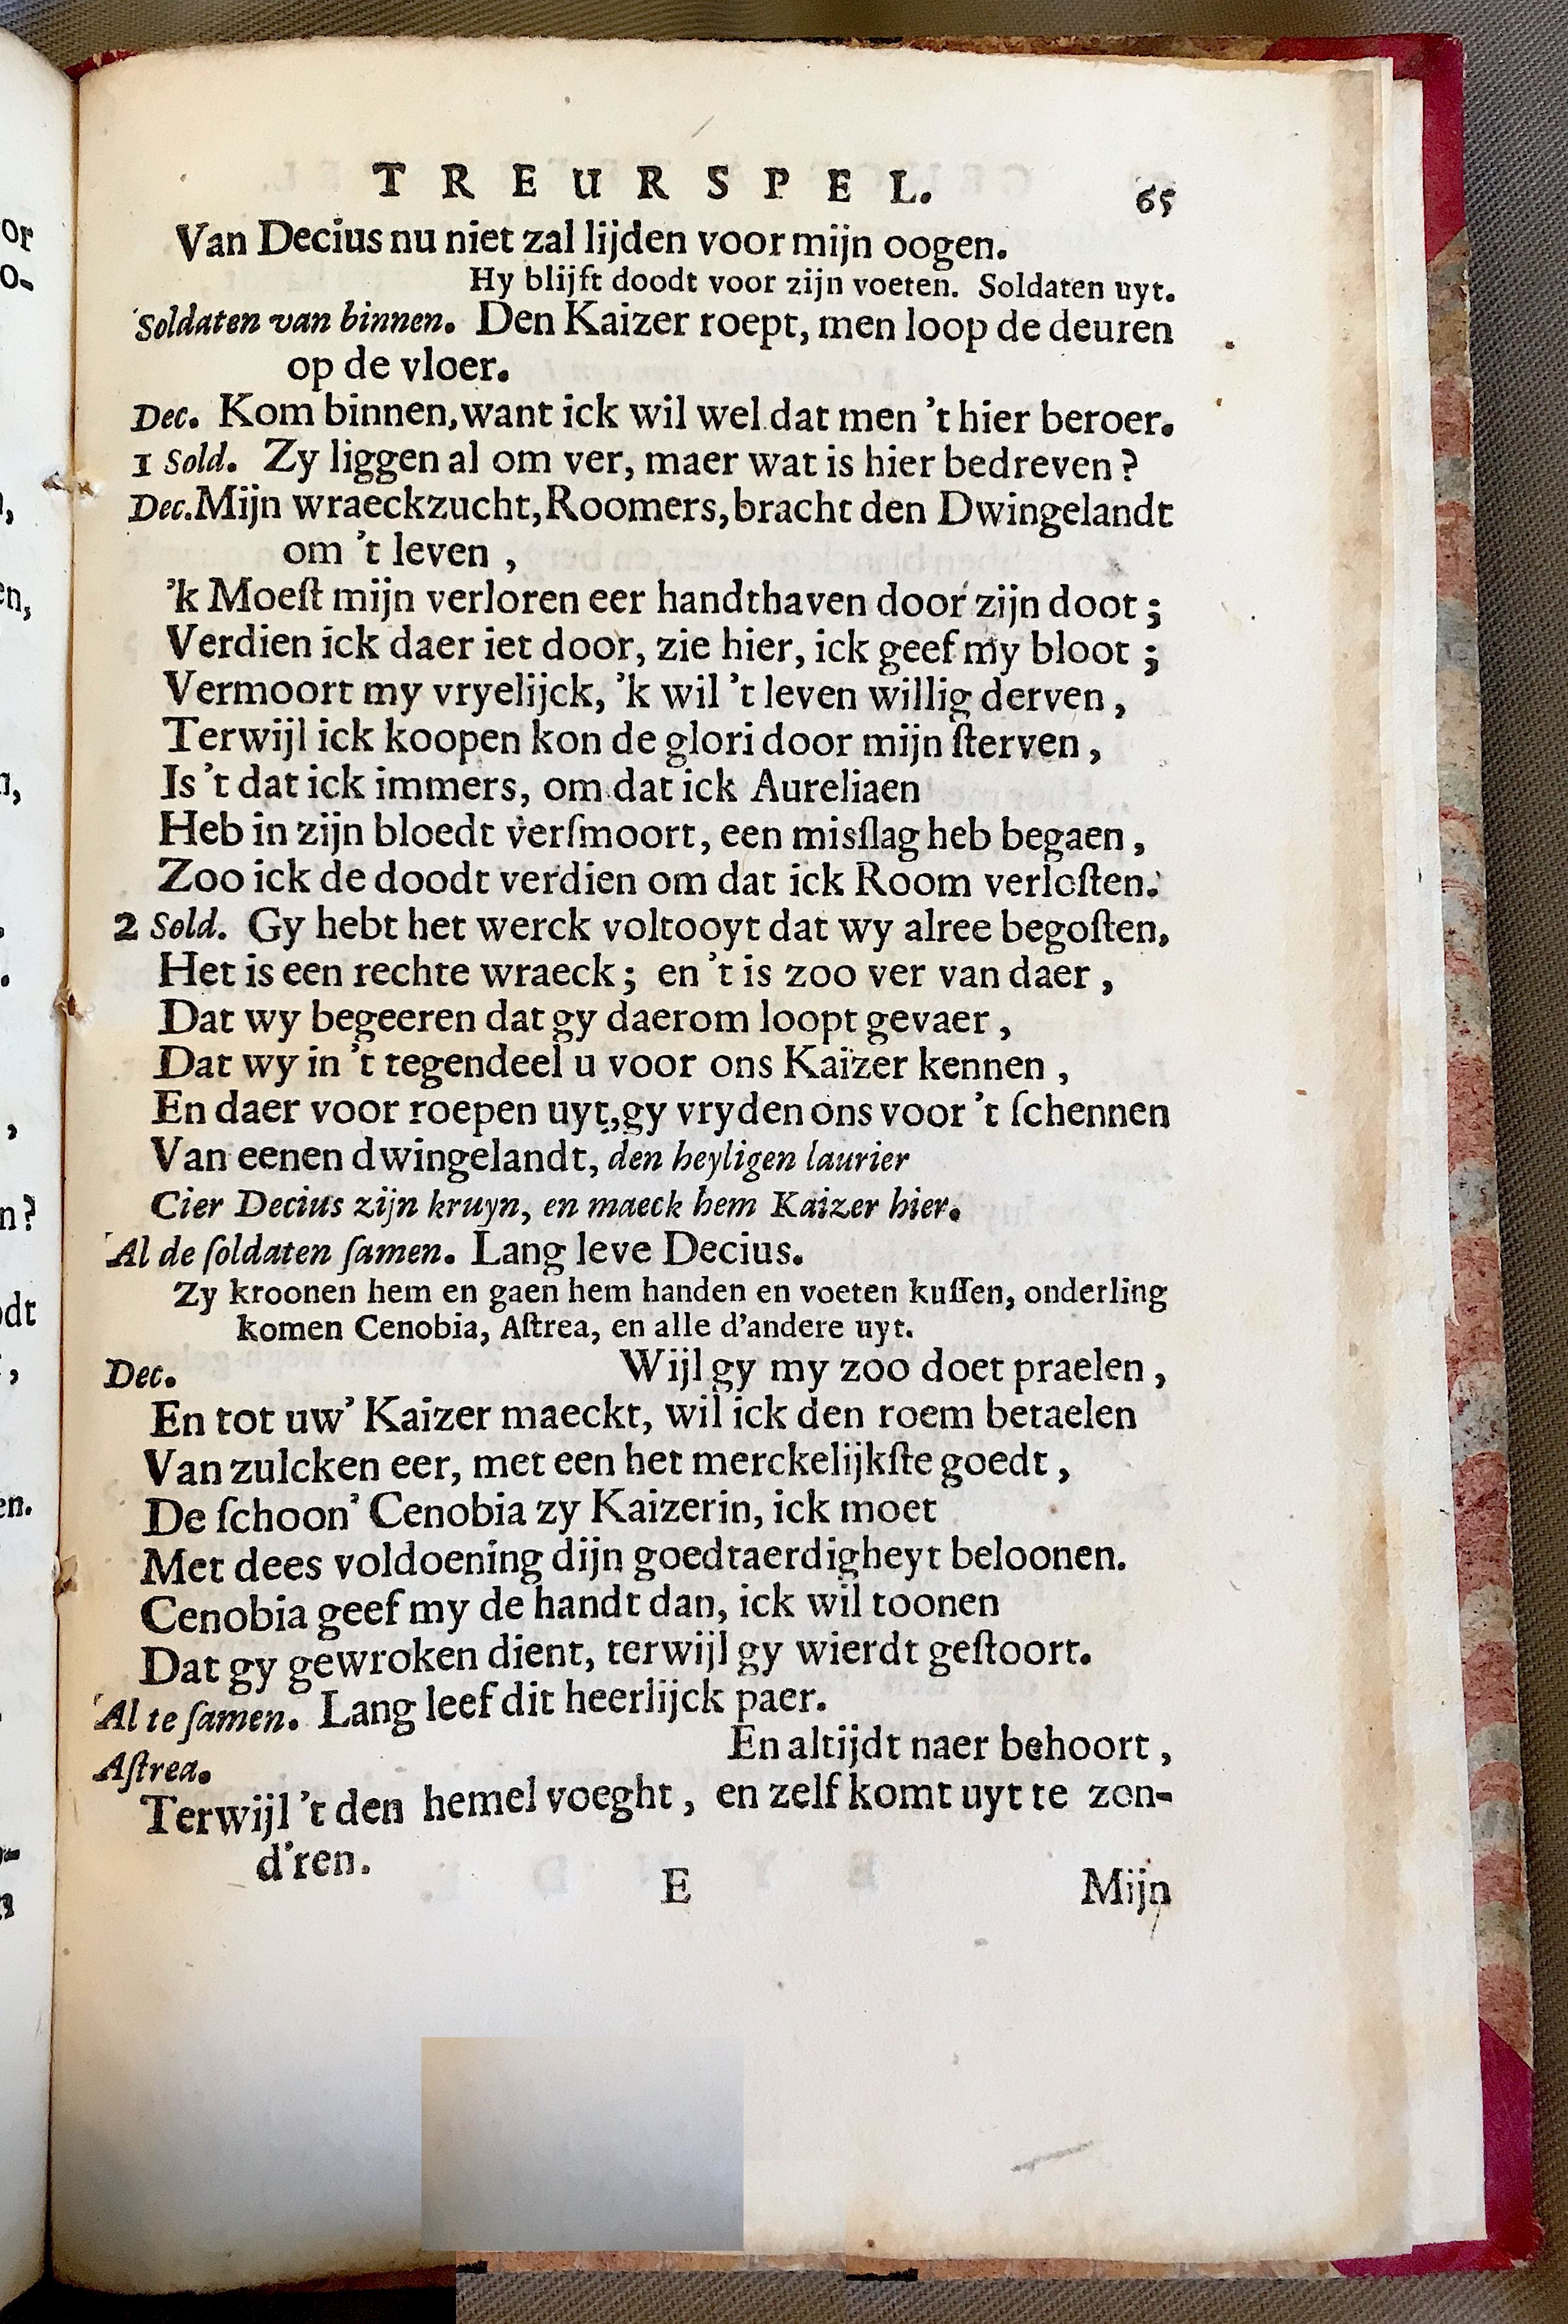 TREURSPEL. 65
Van Decius nu niet zal lijden voor mijn oogen.
Hy blijft doodt voor zijn voeten. Soldaten uyt.
Soldaten van binnen. Den Kaizer roept, men loop de deuren
op de vloer.
Dec. Kom binnen, want ick wil wel dat men 't hier beroer.
1 Sold. Zy liggen al om ver, maer wat is hier bedreven?
Dec. Mijn wraeckzucht, Roomers, bracht den Dwingelandt
om 't leven,
'k Moeſt mijn verloren eer handthaven door zijn doot;
Verdien ick daer iet door, zie hier, ick geef my bloot;
Vermoort my vryelijck, 'k wil 't leven willig derven,
Terwijl ick koopen kon de glori door mijn ſterven,
Is 't dat ick immers, om dat ick Aureliaen
Heb in zijn bloedt verſmoort, een misſlag heb begaen,
Zoo ick de doodt verdien om dat ick Room verloſten.
2 Sold. Gy hebt het werck voltooyt dat wy alree begoſten,
Het is een rechte wraeck; en 't is zoo ver van daer,
Dat wy begeeren dat gy daerom loopt gevaer,
Dat wy in 't tegendeel u voor ons Kaizer kennen,
En daer voor roepen uyt, gy vryden ons voor 't ſchennen
Van eenen dwingelandt, den heyligen laurier
Cier Decius zijn kruyn, en maeck hem Kaizer hier.
Al de ſoldaten ſamen. Lang leve Decius.
Zy kroonen hem en gaen hem handen en voeten kuſſen, onderling
komen Cenobia, Aſtrea, en alle d'andere uyt.
Dec. Wijl gy my zoo doet praelen,
En tot uw' Kaizer maeckt, wil ick den roem betaelen
Van zulcken eer, met een het merckelijkſte goedt,
De ſchoon' Cenobia zy Kaizerin, ick moet
Met dees voldoening dijn goedtaerdigheyt beloonen.
Cenobia geef my de handt dan, ick wil toonen
Dat gy gewroken dient, terwijl gy wierdt geſtoort.
Al te ſamen. Lang leef dit heerlijck paer.
Aſtrea. En altijdt naer behoort,
Terwijl 't den hemel voeght, en zelf komt uyt te zon-
d'ren.
E Mijn